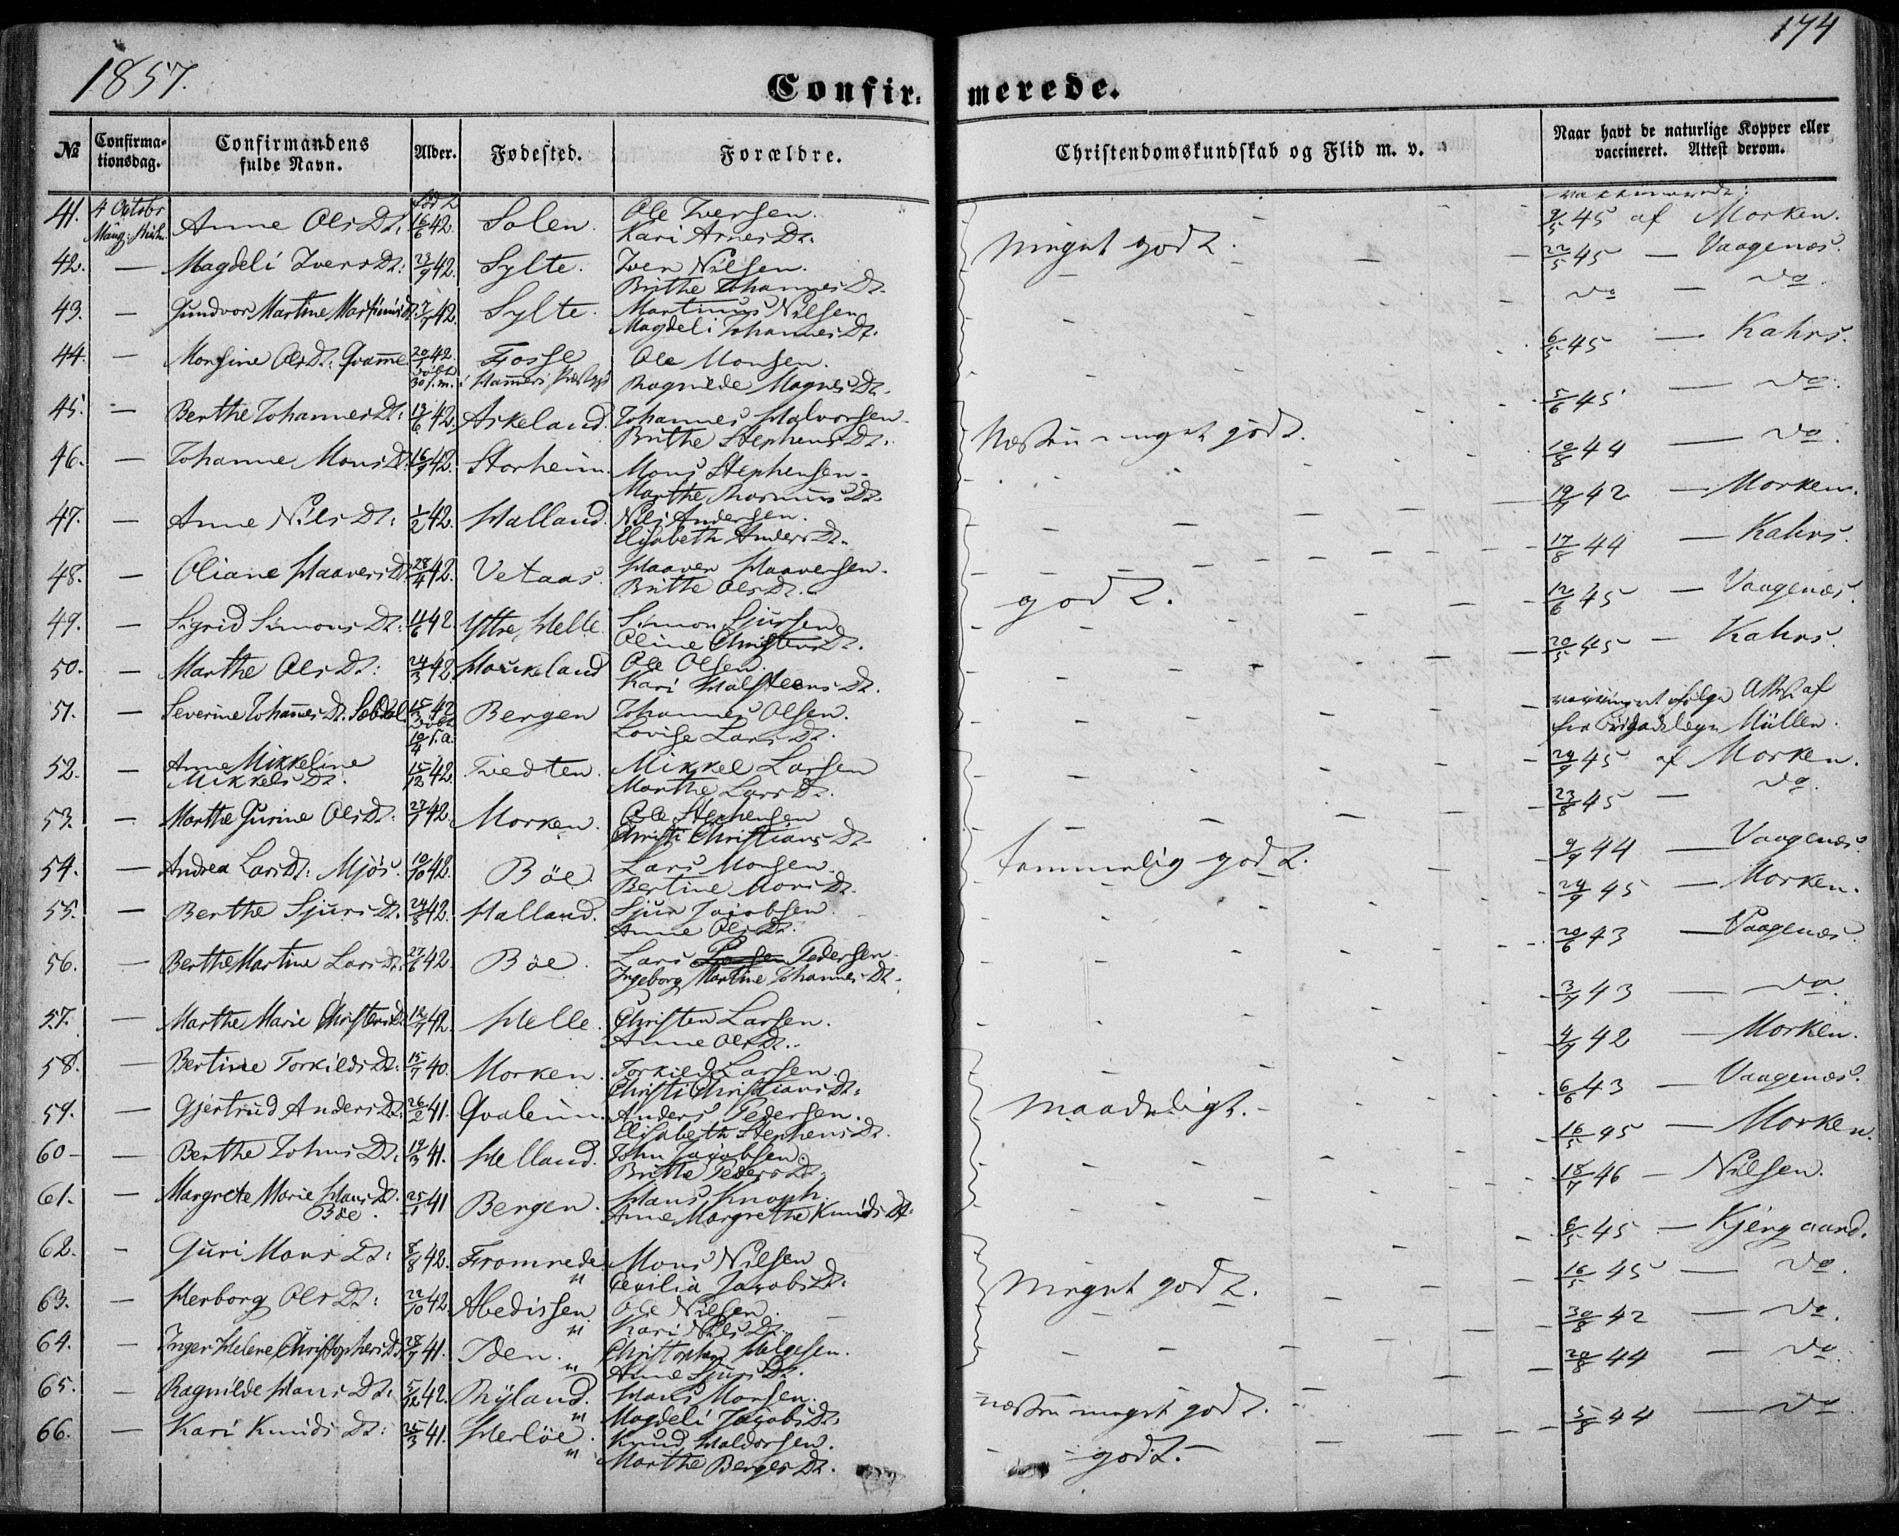 174
1857.
Confirmerede.
№ Confirmationsdag. Confirmandens fulde Navn. Alder. Fødested. Forældre. Christendomskundskab og Flid m. v. Naar havt de naturlige Kopper eller vaccineret. Attest derom.
41. 4 Octobr Anne Ols Dt. født 16/6 42. Solen. Ole Iversen. Kari Arnes Dt. meget godt. 9/5 45 af Morken.
42. — Magdeli Ivers Dt: 23/9 42. Sylte. Iver Nilsen. Brithe Johannes Dt. — 22/5 45 — Vaagenæs.
43. — Gundvor Martine Martinus Dt. 42. Sylte. Martinus Nilsen Magdeli Johannes Dt. — do — do.
44. — Monsine Ols Dt: Qvamme 42. Fosse i Hammers Præstegj. Ole Monsen. Ragnilde Magnes Dt. — 6/5 45 — Kahrs.
45. — Berthe Johannes Dt: 13/6 42. Askeland. Johannes Halvorsen. Brithe Stephens Dt. Næsten meget godt. 5/6 45 — do.
46. — Johanne Mons Dt. 16/9 42. Storheim. Mons Stephensen. Marthe Rasmus Dt. — 10/8 44 — do.
47. — Anne Nils Dt: 1/2 42. Halland. Nils Andersen. Elisabeth Anders Dt. — 19/7 42 — Morken.
48. — Oliane Haavers Dt. 42. Vetaas. Haaver Haaversen. Britte Ols Dt. — 17/8 44 — Kahrs.
49. — Sigrid Simons Dt. 11/6 42. Yttre Helle. Simon Sjursen Oline Christens Dt. godt. 12/6 45 — Vaagenæs.
50. — Marthe Ols Dt: 24/3 42. Haukeland Ole Olsen. Kari Halsteens Dt. — 20/5 45 — Kahrs.
51. — Severine Johannes Dt. Sæbdal 42 Bergen Johannes Olsen. Lovise Lars Dt. — vaccineret ifølge Attest af Brigadelæge Müller.
52. — Anne Mikkeline Mikkels Dt. 15/12 42. Tvedten. Mikkel Larsen Marthe Lars Dt. — 24/9 45 af Morken.
53. — Marthe Gurine Ols Dt: 42. Morken. Ole Stephensen Christi Christians Dt. — 23/8 45 — do.
54. — Andrea Lars Dt: Mjøs. 10/10 42. Böe. Lars Monsen. Bertine Mons Dt. temmelig godt. 9/9 44 — Vaagenæs.
55. — Berthe Sjurs Dt. 24/8 42. Halland. Sjur Jacobsen. Anne Ols Dt. — 24/9 45 — Morken.
56. — Berthe Martine Lars Dt. 27/6 42. Böe. Lars Pedersen. Ingeborg Martine Johannes Dt. — 20/6 43 — Vaagenæs.
57. — Marthe Marie Christens Dt. 12/7 42. Helle. Christen Larsen. Anne Ols Dt. — 3/7 43 — do.
58. — Bertine Torkilds Dt. 15/7 40. Morken. Torkild Larsen. Christi Christians Dt: — 4/7 42 — Morken.
59. — Gjertrud Anders Dt. 26/2 41. Qvaleim. Anders Pedersen. Elisabeth Stephens Dt. maadeligt. 6/6 43 — Vaagenæs.
60 — — Berthe Johns Dt: 19/3 41. Helland. John Jacobsen. Britte Peders Dt. — 16/5 45 — Morken.
61. — Margrete Marie Hans Dt. Böe. 25/1 41 Bergen. Hans Knoph Anne Margrethe Knuds Dt: — 18/7 46 — Nilsen.
62. — Guri Mons Dt: 8/8 42. Fromrede Mons Nilsen Cecilia Jacobs Dt. — 6/5 45 — Kjergaard.
63. — Herborg Ols Dt: 22/10 42. Abedissen. Ole Nilsen. Kari Nils Dt. meget godt. 16/5 45 — do.
64. — Inger Helene Christophers Dt. 28/7 41. Iden. Christopher Helgesen. Anne Sjurs Dt. — 30/8 42 — do.
65. — Ragnilde Hans Dt. 5/12 42. Ryland. Hans Monsen. Magdeli Jacobs Dt. næsten meget godt. 20/8 44 — do.
66. — Kari Knuds Dt: 25/3 41. Herlöe. Knud Haldorsen. Marthe Berges Dt. godt. 5/8 44 — do